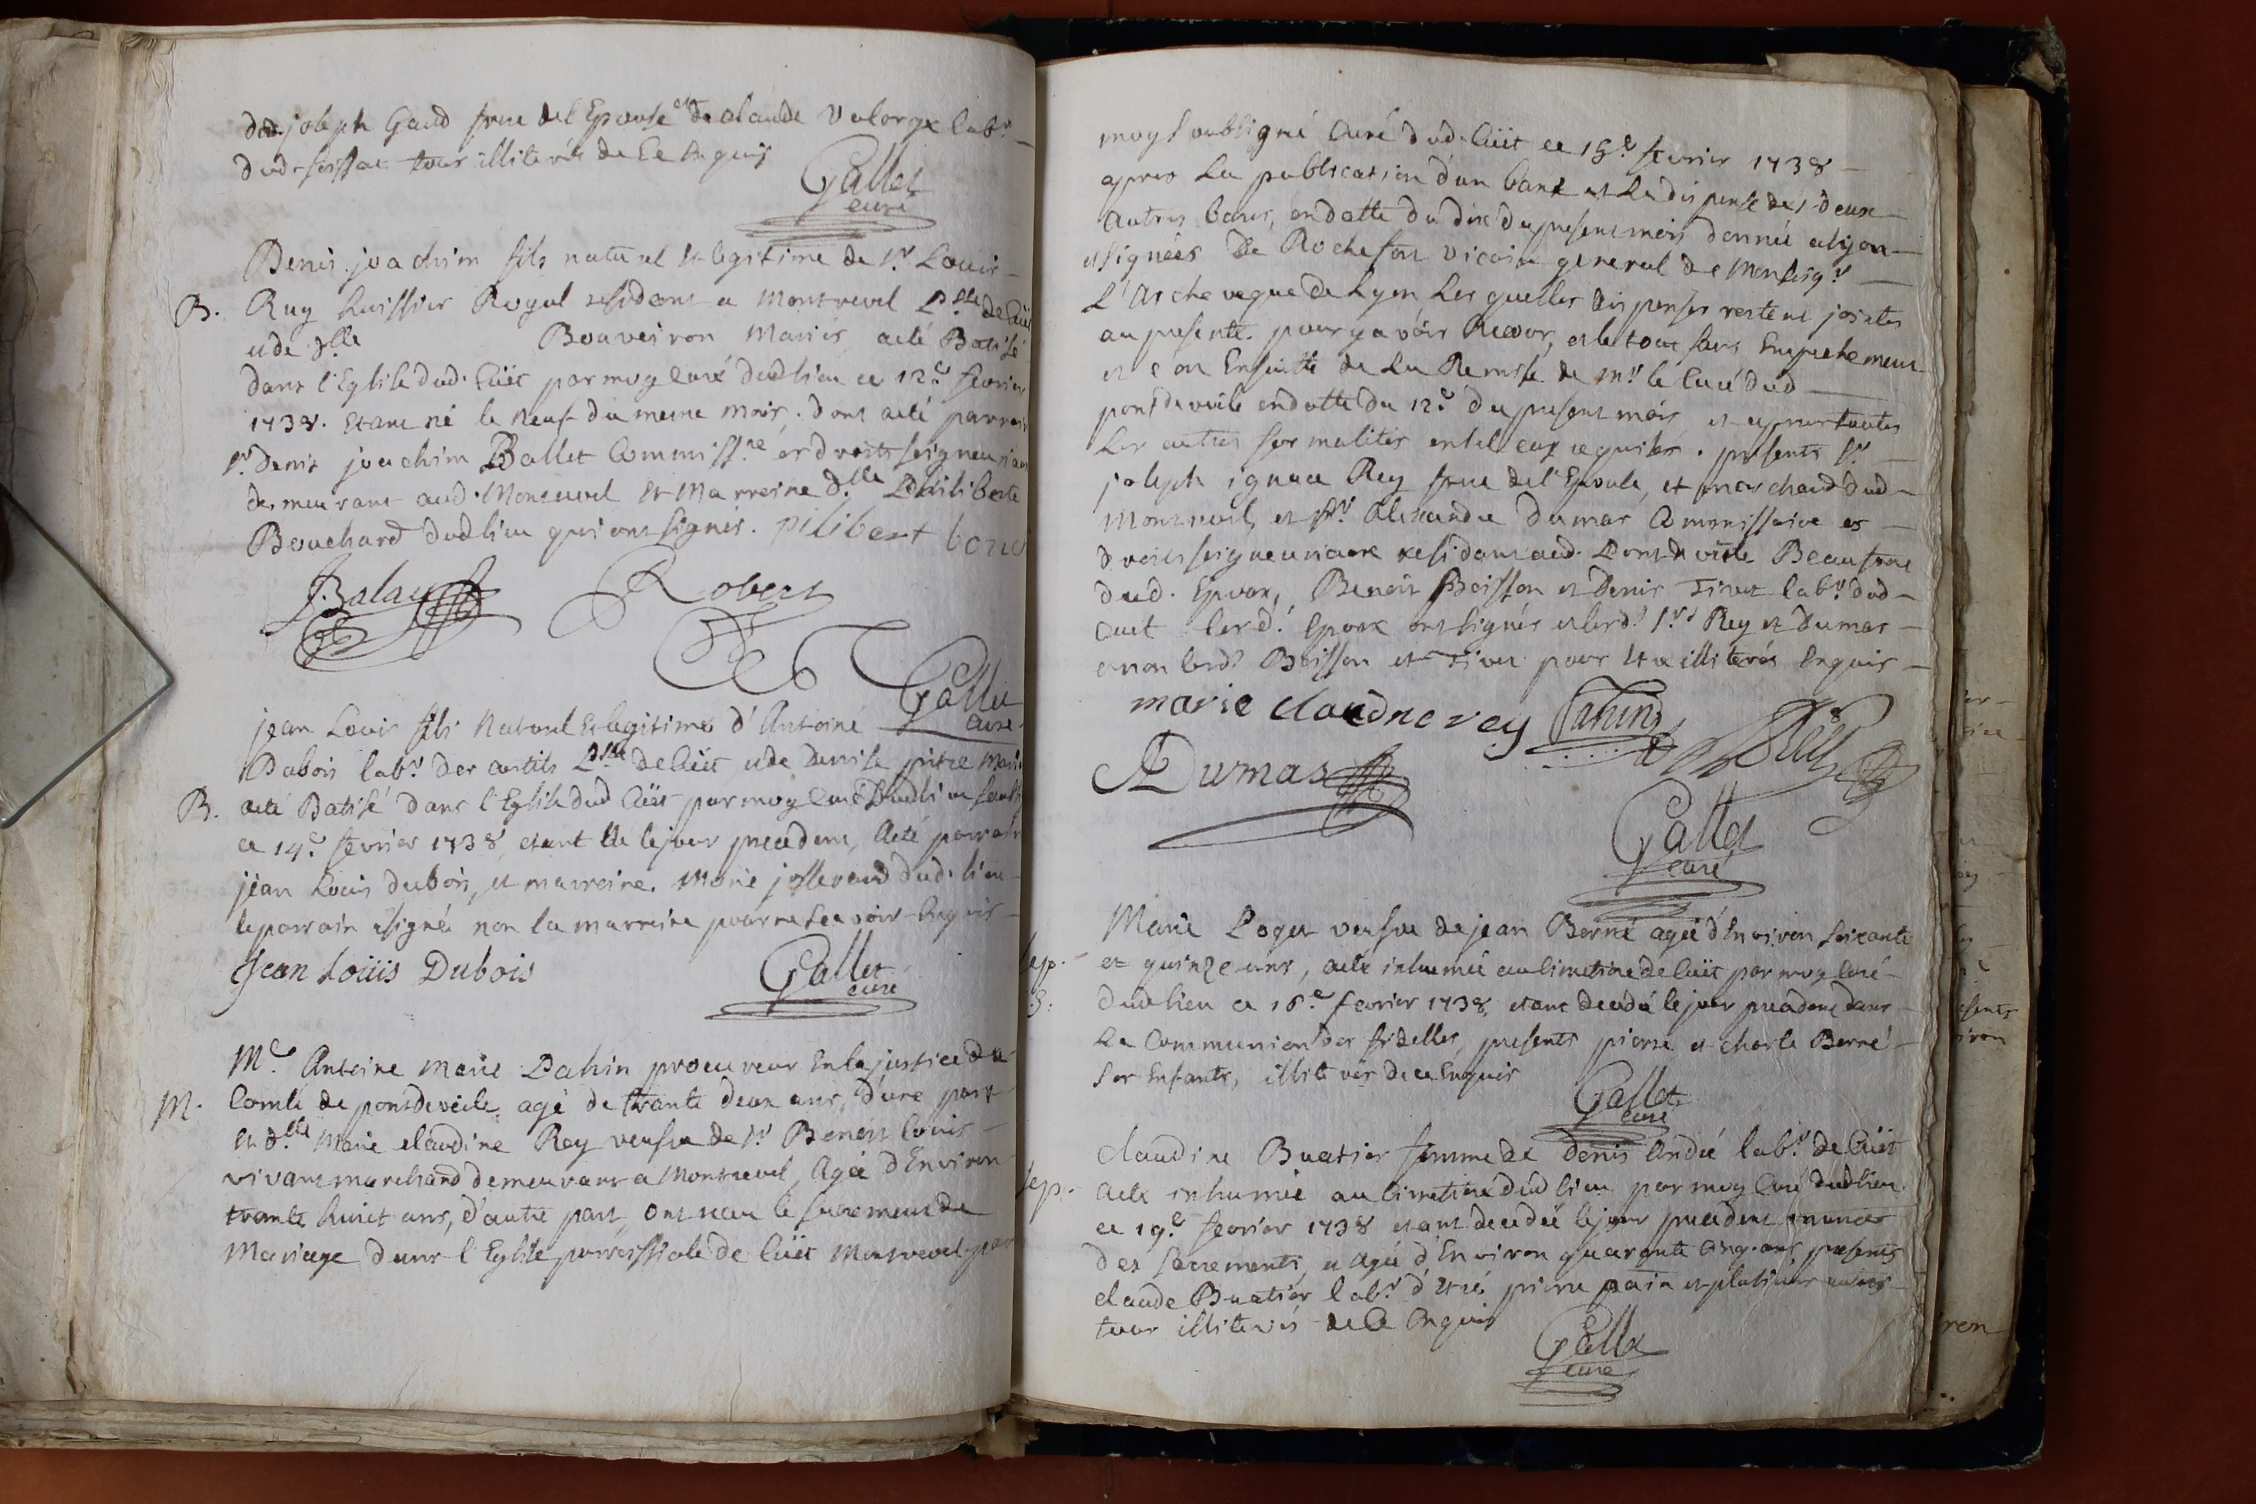 dud. joseph Gaud frere de l'Epouse et de claude Valorge lab.r
dud. foissiat tous illiterés de ce Enquis
Gallet
curé
Denis joachim fils naturel et legitime de S.r Louis
B. Ruy huissier Royal residant a Montrevel P.sse de Cüet
et de d.lle Bouveiron Mariés a eté Batisé
dans l'Eglise dud. Cüet par moy curé dud lieu ce 12.e fevrier
1738. etant né le neuf du meme mois. dont a eté parrain
S.r denis joachim Ballet Commiss.re es droits seigneuriaux
demeurant aud. Montrevel et Marreine d.lle Philiberte
Bouchard dud lieu qui ont signés. pilibert bouc
J. Balay Robert
Gallet
curé
jean Louis fils Naturel et legitime d'Antoine
Dubois lab.r des P.sse de Cüet et de Denise pitre Mariés
B. a eté Batisé dans l'Eglise dud Cüet par moy curé dud lieu
ce 14.e fevrier 1738, etant né le jour precedent, a eté parrain
jean Louis dubois, et marreine. Marie josserand dud. lieu
le parrain a signé non la marreine pour ne sçavoir Enquis
Jean Loüis Dubois Gallet
curé
M.e Antoine Marie Dahin procureur En la justice du
M. Comté de pontdeveile agé de trante deux ans, d'une part
Et d.lle Marie claudine Rey veufve de S.r Benoit Louis
vivant marchand demeurant a Montrevel, Agée d'Environ
trante huict ans, d'autre part, ont receu le sacrement de
Mariage dans l'Eglise parroissiale de Cüet Montrevel par
moy soubsigné Curé dud. Cüet ce 18.e fevrier 1738
apres La publication d'un banc et La dispense des deux
autres bancs, en datte du dix du present mois donnée a lyon
et signées De Rochefort vicaire general de Monseig.r
L'Archeveque de Lyon Lesquelles dispenses restent jointes
au presente. pour y avoir Recour, et le tout sans Empechement
et Ensuitte de La Remise de M.r le Curé dud
pontdeveile en datte du 12.e du present mois, et apres toutes
Les autres formalités en tel cas requises. presents S.r
joseph ignace Rey frere de l'Epouse, et marchand dud
Montrevel, et S.r Alexandre Dumas Commissaire es
droits seigneuriaux residant aud. Pontdeveile Beaufrere
dud. Epoux, Benoit Boisson et Denis Tivet lab.rs dud
Cuet lesd. Epoux ont signés et lesd. S.rs Rey et Dumas
et non lesd. Boisson et Tivet pour Etre illiterés Enquis
marie claudine rey Dahin Rey
Dumas
Gallet
curé
Marie Poget veufve de jean Berné agée d'Environ soixante
sep. et quinze ans, a eté inhumée au cimetiere de Cüet par moy curé
dud lieu ce 18.e fevrier 1738, etant decedé le jour precedent dans
La Communion des fidelles, presents pierre et charle Berné
ses Enfants, illiterés de ce Enquis
Gallet
curé
claudine Buatier femme de denis André lab.r de Cüet
sep. a eté inhumée au cimetiere dud lieu par moy curé dud lieu
ce 19.e fevrier 1738 etant decedée le jour precedent munie
des sacrements, et agée d'Environ quarante cinq ans, presents
claude Buatier lab.r d'Etré, pierre pain et plusieurs autres
tous illiterés de ce Enquis
Gallet
curé